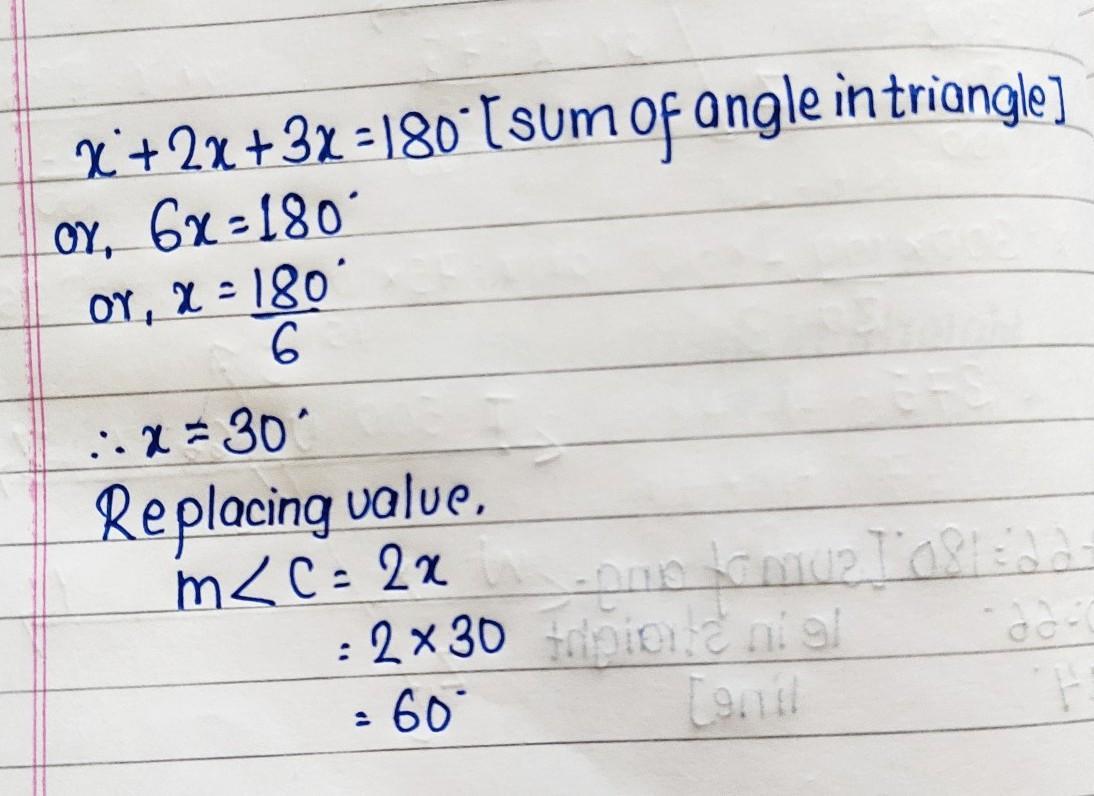 x° + 2x + 3x = 180° [sum of angle in triangle]
or, 6x = 180°
or, x = 180°
6
∴ x = 30°
Replacing value.
m<C = 2x
= 2 × 30
= 60°